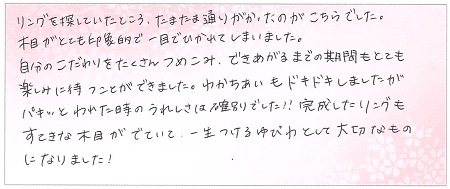 リングを探していたところ、たまたま通りがかったのがこちらでした。
木目がとても印象的で一目でひかれてしまいました。
自分のこだわりをたくさんつめこみ、できあがるまでの期間もとても
楽しみに待つことができました。わかちあいもドキドキしましたが
パキッとわれた時のうれしさは格別でした!! 完成したリングも
すてきな木目がでていて、一生つけるゆびわとして大切なもの
になりました!